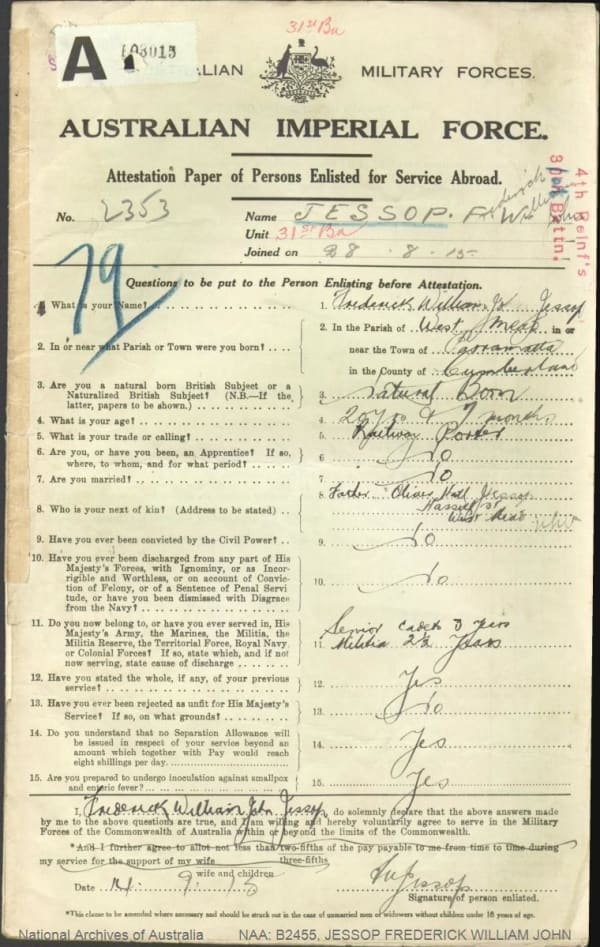 31st Bn
A
MILITARY FORCES.
AUSTRALIAN IMPERIAL FORCE.
Attestation Paper of Persons Enlisted for Service Abroad.
No. 2353
Name JESSOP. F. Frederick William John
Unit 31st Bn
Joined on 28 . 8 . 15
4th Reinf's
30th Battn.
79
Questions to be put to the Person Enlisting before Attestation.
1. What is your Name? 1. Frederick William Jessop
2. In or near what Parish or Town were you born? 2. In the Parish of West Mead in or
near the Town of Parramatta
in the County of Cumberland
3. Are you a natural born British Subject or a
Naturalized British Subject? (N.B.—If the
latter, papers to be shown.) 3. Natural Born
4. What is your age? 4. & 7 months
5. What is your trade or calling? 5. Railway Porter
6. Are you, or have you been, an Apprentice? If so,
where, to whom, and for what period? 6. No
7. Are you married? 7. No
8. Who is your next of kin? (Address to be stated) 8. Father Oliver Hall Jessop
Hassall St
West Mead NSW
9. Have you ever been convicted by the Civil Power? 9. No
10. Have you ever been discharged from any part of His
Majesty's Forces, with Ignominy, or as Incor-
rigible and Worthless, or on account of Convic-
tion of Felony, or of a Sentence of Penal Servi
tude, or have you been dismissed with Disgrace
from the Navy? 10. No
11. Do you now belong to, or have you ever served in, His
Majesty's Army, the Marines, the Militia, the
Militia Reserve, the Territorial Force, Royal Navy
or Colonial Forces? If so, state which, and if not
now serving, state cause of discharge 11. Senior Cadets 3 years
Militia 2½ Years
12. Have you stated the whole, if any, of your previous
service? 12. Yes
13. Have you ever been rejected as unfit for His Majesty's
Service? If so, on what grounds? 13. No
14. Do you understand that no Separation Allowance will
be issued in respect of your service beyond an
amount which together with Pay would reach
eight shillings per day. 14. Yes
15. Are you prepared to undergo inoculation against smallpox
and enteric fever? 15. Yes
I, Frederick William John Jessop do solemnly declare that the above answers made
by me to the above questions are true, and I am willing and hereby voluntarily agree to serve in the Military
Forces of the Commonwealth of Australia within or beyond the limits of the Commonwealth.
*And I further agree to allot not less than two-fifths of the pay payable to me from time to time during
three-fifths
my service for the support of my wife
wife and children
Date 14 . 9 . 15
Jessop
Signature of person enlisted.
*This clause to be amended where necessary and should be struck out in the case of unmarried men or widowers without children under 18 years of age.
National Archives of Australia
NAA: B2455, JESSOP FREDERICK WILLIAM JOHN